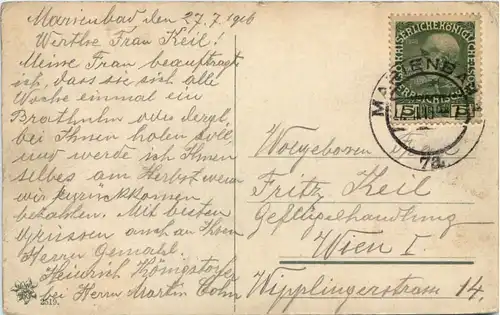 Marienbad den 27.7.1916
Werthe Frau Keil!
Meine Frau beauftragt
ist, dass sie sich alle
Woche einmal ein
Brathuhn oder dergl.
bei Ihnen holen soll,
und werde ich Ihnen
selbes am Herbst wenn
wir zurückkommen
bezahlen. Mit besten
Grüssen auch an Ihren
Herrn Gemahl.
Heinrich Königstofer
bei Herrn Martin Cohn
2519.
MARIENBAD
Wolgeboren
Fritz Keil
Geflügelhandlung
Wien I.
Wipplingerstrasse 14.